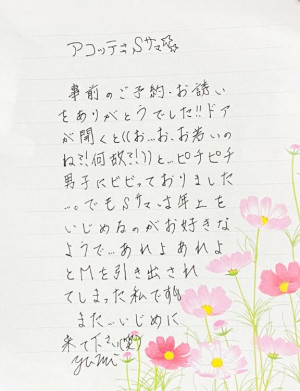 アコッテさSサマ☆
事前のご予約・お誘い
をありがとうでした!!ドア
が開くと((お…お、お若いの
ね?!何故?!))と…ピチピチ
男子にビビっておりました
…。でもSサマ、は年上を
いじめるのがお好きな
ようで…あれよあれよ
とMを引き出され
てしまった私です
また…いじめに
来て下さい(笑)
yumi